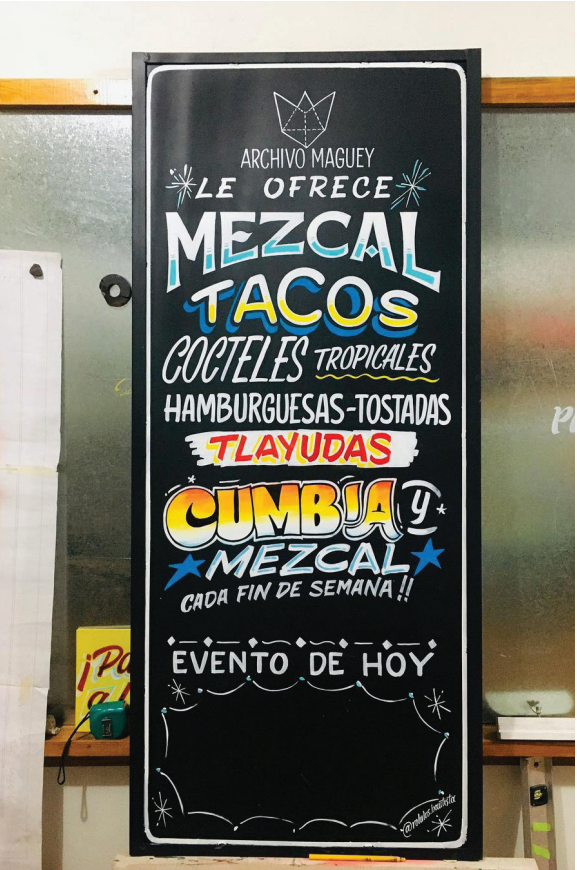 ARCHIVO MAGUEY
LE OFRECE
MEZCAL
TACOS
COCTELES TROPICALES
HAMBURGUESAS-TOSTADAS
TLAYUDAS
CUMBIA Y
MEZCAL
CADA FIN DE SEMANA!!
EVENTO DE HOY
@rotulos.bautista